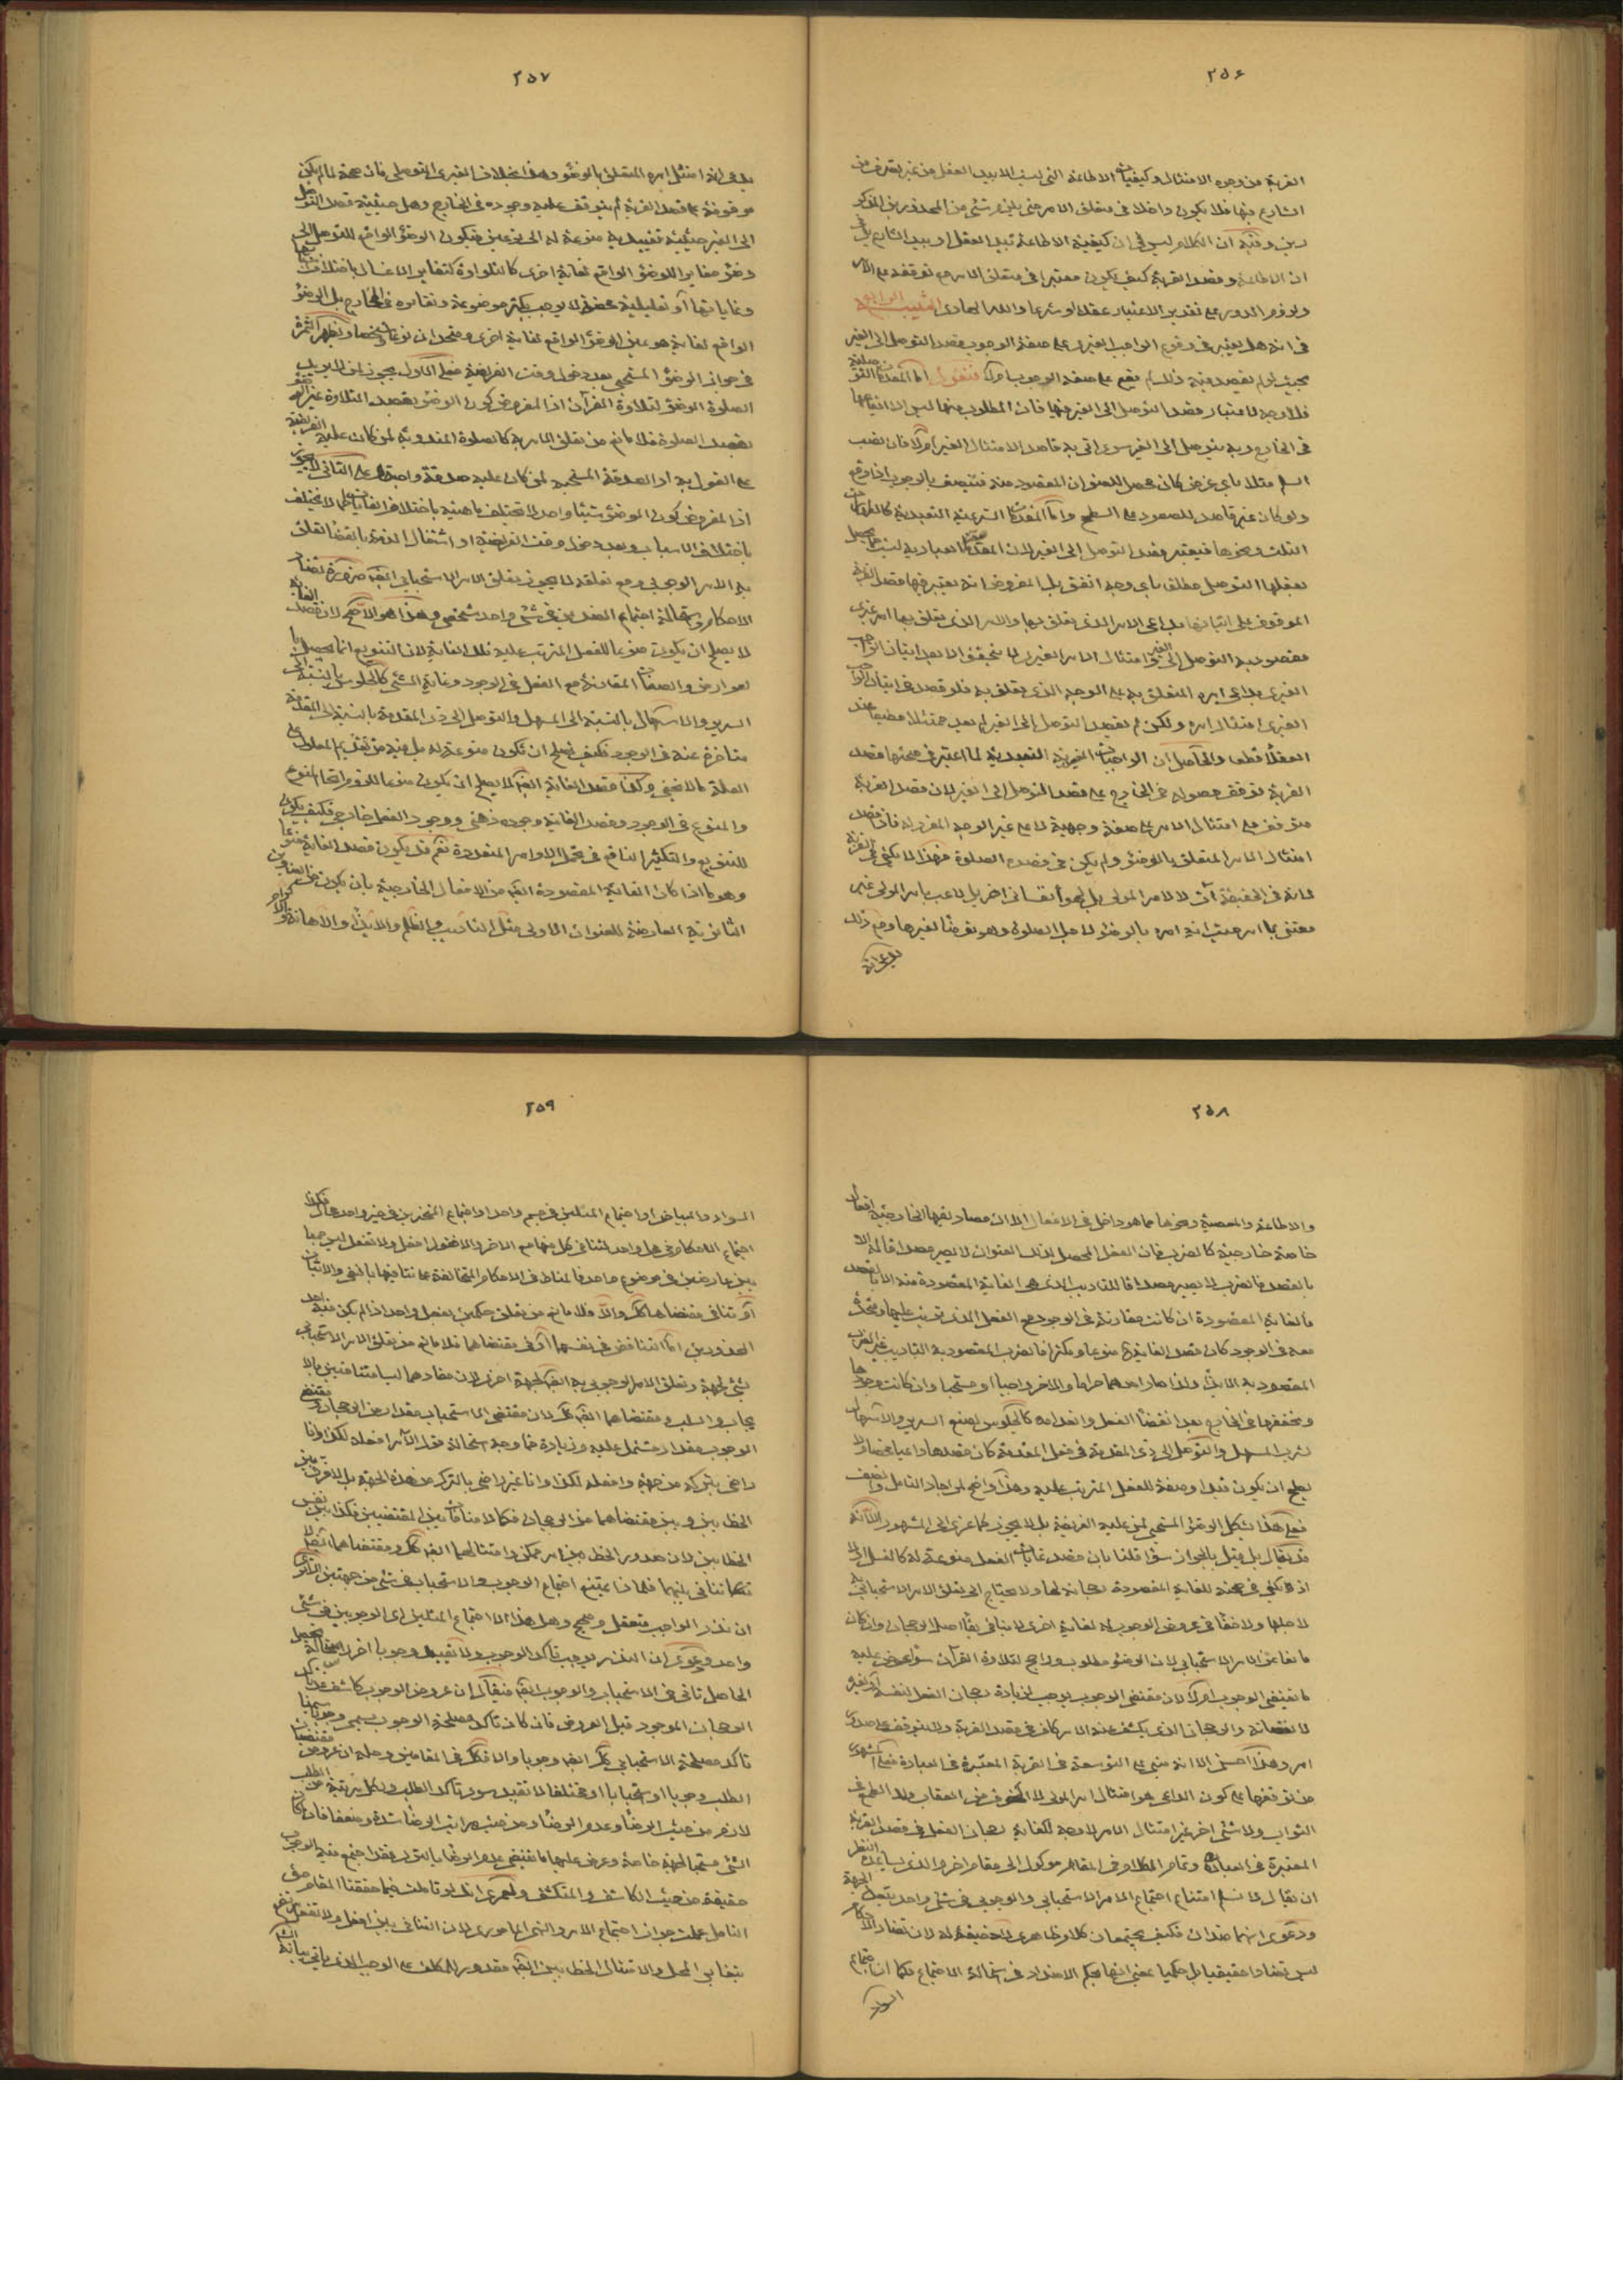 ٢٥٦
القربة من وجوه الامتثال وكيفيات الاطاعة التى ليست الا بيد العقل من غير تصرف من
الشارع فيها فلا يكون داخلا فى متعلق الامر حتى يلزم شئ من المحذورين المذكو
رين وفيه ان الكلام ليس فى ان كيفية الاطاعة بيد العقل او بيد الشارع بل فى
ان الاطاعة وقصد القربة كيف يكون معتبرا فى متعلق الامر مع توقفه على الامر
ولزوم الدور على تقدير الاعتبار عقلا او شرعا والله الهادى
فى انه هل يعتبر فى وقوع الواجب الغيرى على صفة الوجوب قصد التوصل الى الغير
بحيث لو لم يقصد فيه ذلك لم يقع على صفة الوجوب ام لا فنقول اما المقدمات
فلا وجه لاعتبار قصد التوصل الى الغير فيها فان المطلوب منها ليس الا ايقاعها
فى الخارج وبه يتوصل الى الغير سوى اتى به قاصد الامتثال الغير ام لا فان نصب
السلم مثلا باى غرض كان محصل للعنوان المقصود منه فتتصف بالوجوب اذا وقع
ولو كان غير قاصد للصعود على السطح واما المقدمات الشرعية التعبدية كالطهارات
الثلث ونحوها فيعتبر قصد التوصل الى الغير لان المقدمات العبادية ليست مما يحصل
بفعلها التوصل مطلق باى وجه اتفق بل المفروض انه يعتبر فيها قصد القربة
الموقوف على اتيانها بداعى الامر الذى يتعلق بها والامر الذى يتعلق بها امر غيرى
مقصود به التوصل الى الغير وامتثال الامر الغيرى لا يتحقق الا بعد اتيان الواجب
الغيرى بداعى امره المتعلق به على الوجه الذى يتعلق به فلو قصد فى اتيان الواجب
الغيرى امتثال امره ولكن لم يقصد التوصل الى الغير لم يعد ممتثلا مطيعا عند
العقلاء قطعا والحاصل ان الواجبات الغيرية التعبدية لما اعتبر فى صحتها قصد
القربة توقف حصوله فى الخارج على قصد التوصل الى الغير لان قصد القربة
متوقف على امتثال الامر على صفة وجهية لا على غير الوجه المقرر له فاذا قصد
امتثال الامر المتعلق بالوضوء ولم يكن فى قصده الصلوة فهذا لا يكفى فى القربة
لانه فى الحقيقة آت لا لامر المولى بل لهواء نفسانى اخر بل لاعب بامر المولى غير
معتن بما امر حيث انه امره بالوضوء لاجل الصلوة وهو توضأ لغيرها ومع ذلك
يدعى انه
٢٥٧
يدعى انه امتثل امره المتعلق بالوضوء وهذا بخلاف الغيرى التوصلى فان صحته لما لم يكن
موقوفة على قصد القربة لم يتوقف عليه وجوده فى الخارج وهل حيثية قصد التوصل
الى الغير حيثية تقييدية منوعة له الى نوعين فيكون الوضوء الواقع للتوصل الى
وضوء مغايرا للوضوء الواقع لغاية اخرى كالتلاوة كتغاير الاغسال باختلاف
وغاياتها أو تعليلية محضة لا يوجب تكثر موضوعه وتغايره فى الخارج بل الوضوء
الواقع لغاية هو عين الوضوء الواقع لغاية اخرى ومتحدان نوعا وشخصا ويظهر الثمرة
فى جواز الوضوء المستحبى بعد دخول وقت الفريضة فعلى الاول يجوز لمن لا يريد
الصلوة الوضوء لتلاوة القرآن اذا المفروض كون الوضوء بقصد التلاوة غير الوضوء
بقصد الصلوة فلا مانع من تعلق الامر به كالصلوة المندوبة لمن كان عليه الفريضة
على القول به او الصدقة المستحبة لمن كان عليه صدقة واجبة وعلى الثانى لا يجوز
اذا المفروض كون الوضوء شيئا واحدا لا تختلف ماهيته باختلاف الغايات كما لا يختلف
باختلاف الاسباب وبعد دخول وقت الفريضة او اشتغال الذمة بالقضاء تعلق
به الامر الوجوبى ومع تعلقه لا يجوز تعلق الامر الاستحبابى ايضا ضرورة تضاد
الاحكام واستحالة اجتماع الضدين فى شئ واحد شخصى وهذا هو الاصح لان قصد الغاية
لا يصلح ان يكون منوعا للفعل المترتب عليه تلك الغاية لان التنويع انما يحصل با
لعوارض والصفات المقارنة مع الفعل فى الوجود وغاية الشئ كالجلوس بالنسبة الى
السرير والاسهال بالنسبة الى المسهل والتوصل الى ذى المقدمة بالنسبة الى المقدمة
متاخرة عنه فى الوجود فكيف يصلح ان تكون منوعة له بل فيه من تقدم المعلول على
العلة ما لا يخفى وكذا قصد الغاية ايضا لا يصلح ان يكون منوعا للزوم اتحاد المنوع
والمنوع فى الوجود وقصد الغاية وجوده ذهنى ووجود الفعل خارجى فكيف يكون
للتنويع والتكثير النافع فى تحمل الاوامر المتعددة نعم قد يكون قصد الغاية منوعا
وهو ما اذا كان الغاية المقصودة ايضا من الافعال الخارجية بان يكون من العناوين
الثانوية العارضة للعنوان الاولى مثل التاديب والظلم والايذاء والاهانة والاكرام
٢٥٨
والاطاعة والمعصية ونحوها مما هو داخل فى الافعال الا ان مصاديقها الخارجية افعال
خاصة خارجية كالضرب فان الفعل المحصل لذلك العنوان لا يصير مصداقا له الا
بالقصد فالضرب لا يصير مصداقا للتاديب الذى هى الغاية المقصودة منه الا بالقصد
فالغاية المقصودة ان كانت مقارنة فى الوجود مع الفعل الذى ترتبت عليها ومتحدة
معه فى الوجود كان قصد الغاية منوعا ومكثرا فالضرب المقصود به التاديب غير الضرب
المقصود به الايذاء ولذا صار احدهما حراما والاخر واجبا او مستحبا وان كانت وجودها
وتحققها فى الخارج بعد انقضاء الفعل وانعدامه كالجلوس لصنع السرير والاسهال
لشرب المسهل والتوصل الى ذى المقدمة فى فعل المقدمة كان قصدها داعيا محضا ولا
يصلح ان يكون قيدا وصفة للفعل المترتب عليه وهذا واضح لمن اجاد التامل وانصف
فعلى هذا يشكل الوضوء المستحبى لمن عليه الفريضة بل لا يجوز كما عزى الى المشهور
قد يقال بل قيل بالجواز سواء قلنا بان قصد غايات الفعل منوعة له كالغسل ام لا
اذ يكفى فى صحته للغاية المقصودة رجحانه لها ولا يحتاج الى تعلق الامر الاستحبابى به
لاجلها ولا خفاء فى عروض الوجوب له لغاية اخرى لا ينافى بقاء اصل الرجحان وان كان
مانعا عن الامر الاستحبابى لان الوضوء مطلوب وراجح لتلاوة القرآن سواء عرض عليه
ما يقتضى الوجوب ام لا لان مقتضى الوجوب يوجب زيادة رجحان الفعل لنفسه او لغيره
لا نقصانه والرجحان الذى يكشف عنه الامر كاف فى قصد القربة ولا يتوقف على صدور
امر وهذا حسن الا انه مبنى على التوسعة فى القربة المعتبرة فى العبادة فعلى المشهور
من توقفها على كون الداعى هو امتثال امر المولى لا الخوف من العقاب ولا الطمع فى
الثواب ولا شئ اخر غير امتثال الامر لا وجه لكفاية رجحان الفعل فى قصد القربة
المعتبرة فى العبادات وتمام الكلام فى المقام موكول الى مقام اخر والذى يساعده النظر
ان يقال لا نسلم امتناع اجتماع الامر الاستحبابى والوجوبى فى شئ واحد بتعدد الجهة
ودعوى انهما ضدان فكيف يجتمعان كلام ظاهرى لا حقيقة له لان تضاد الاحكام
ليس تضادا حقيقيا بل حكميا بمعنى انها بحكم الاضداد فى استحالة الاجتماع فكما ان اجتماع
السواد
٢٥٩
السواد والبياض او اجتماع المثلين فى جسم واحد او اجتماع المتحيزين فى حيز واحد محال فكذا
اجتماع الاحكام فى محل واحد لتنافى كل منها مع الاخر والا فقول افعل ولا تفعل ليس جمعا
بين عارضين فى موضوع واحد فالمناط فى الاحكام المتخالفة على تنافيها بالنفى والاثبات
أو تنافى مقتضاها كك والا فلا مانع من تعلق حكمين بفعل واحد اذا لم يكن فيه احد
المحذورين اما التناقض فى نفسهما أو فى مقتضاهما فلا مانع من تعلق الامر الاستحبابى
بشئ لجهة وتعلق الامر الوجوبى به ايضا لجهة اخرى لان مفادهما ليسا متنافيين بالا
يجاب والسلب ومقتضاهما ايضا كك لان مقتضى الاستحباب مقدار من الرجحان ومقتضى
الوجوب مقدار مشتمل عليه وزيادة فما وجه استحالة قول الآمر افعله لكذا وانا
راضى بتركه من جهة وافعله لكذا وانا غير راضى بالترك من هذه الجهة بل لا فرق بين
الخطابين وبين مقتضاهما من الرجحان فكما لا منافاة بين المقتضيين فكذا بين نفس
الخطابين لان صدور الخطابين امر ممكن وامتثالهما ايضا كك ومقتضاهما ايضا لا
تنافى بينهما فلماذا يمتنع اجتماع الوجوب والاستحباب فى شئ من جهتين
ان نذر الواجب متعقل وصحيح وهل هذا الا اجتماع المثلين اى الوجوبين فى شئ
واحد ودعوى ان النذر يوجب تاكد الوجوب ولا يفيد وجوبا اخر لاستحالة تحصيل
الحاصل تاتى فى الاستحباب والوجوب ايضا فيقال ان عروض الوجوب كاشف عن تاكد
الرجحان الموجود قبل العروض فان كان تاكد مصلحة الوجوب يسمى وجوبا
تاكد مصلحة الاستحبابى كك ايضا وجوبا والا فكك فى المقامين وجملة ان عروض
الطلب وجوبا او استحبابا او مختلفا لا تفيد سوى تاكد الطلب ولكل مرتبة من الطلب
لازم من حيث الرضاء وعدم الرضاء ومن حيث مراتب الرضاء شدة وضعفا فان كان
الشئ مستحبا لجهة خاصة وعرض عليها ما يقتضى عدم الرضاء بالترك فقد اجتمع فيه الوجوب
حقيقة من حيث الكاشف والمنكشف ولعمرى انك لو تاملت فيما حققنا المقام حق
التامل عملت جواز اجتماع الامر والنهى المامورى لان التنافى بين افعل ولا تفعل يرتفع
بتغاير المحل والامتثال الخطابين ايضا مقدور للمكلف على الوجه الذى ياتى بيانه